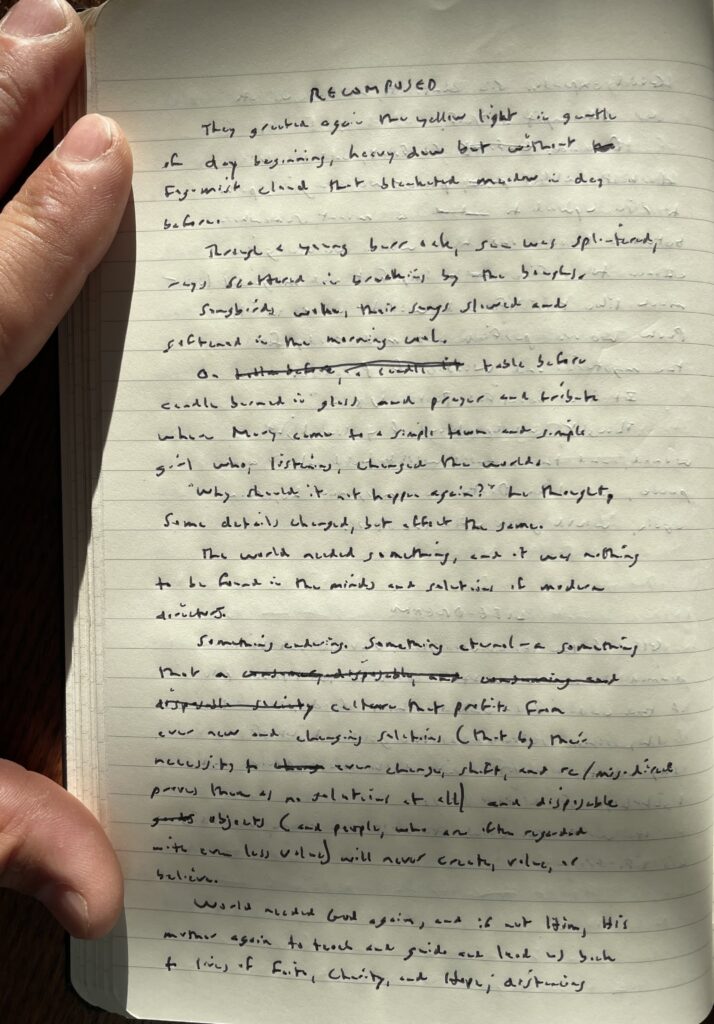 RECOMPOSED
They greeted again the yellow light in gentle
of day beginning, heavy dew but without
Fog-mist cloud that blanketed meadow in day
before.
Through a young burr oak, sun was splintered,
rays scattered in breaking by the boughs.
Songbirds woke, their songs slowed and
softened in the morning cool.
On table before
candle burned in glass and prayer and tribute
when Mary came to a simple town and simple
girl who, listening, changed the worlds.
"Why should it not happen again?" he thought,
Some details changed, but effect the same.
The world needed something, and it was nothing
to be found in the minds and solutions of modern
directors.
Something enduring. Something eternal – a something
that a consuming and
disposable society culture that profits from
ever new and changing solutions (that by their
necessity to change ever change, shift, and re/misdirect
proves them as no solutions at all) and disposable
goods objects (and people, who are often regarded
with even less value) will never create, value, or
believe.
World needed God again, and if not Him, His
mother again to teach and guide and lead us back
to lives of Faith, Charity, and Hope;